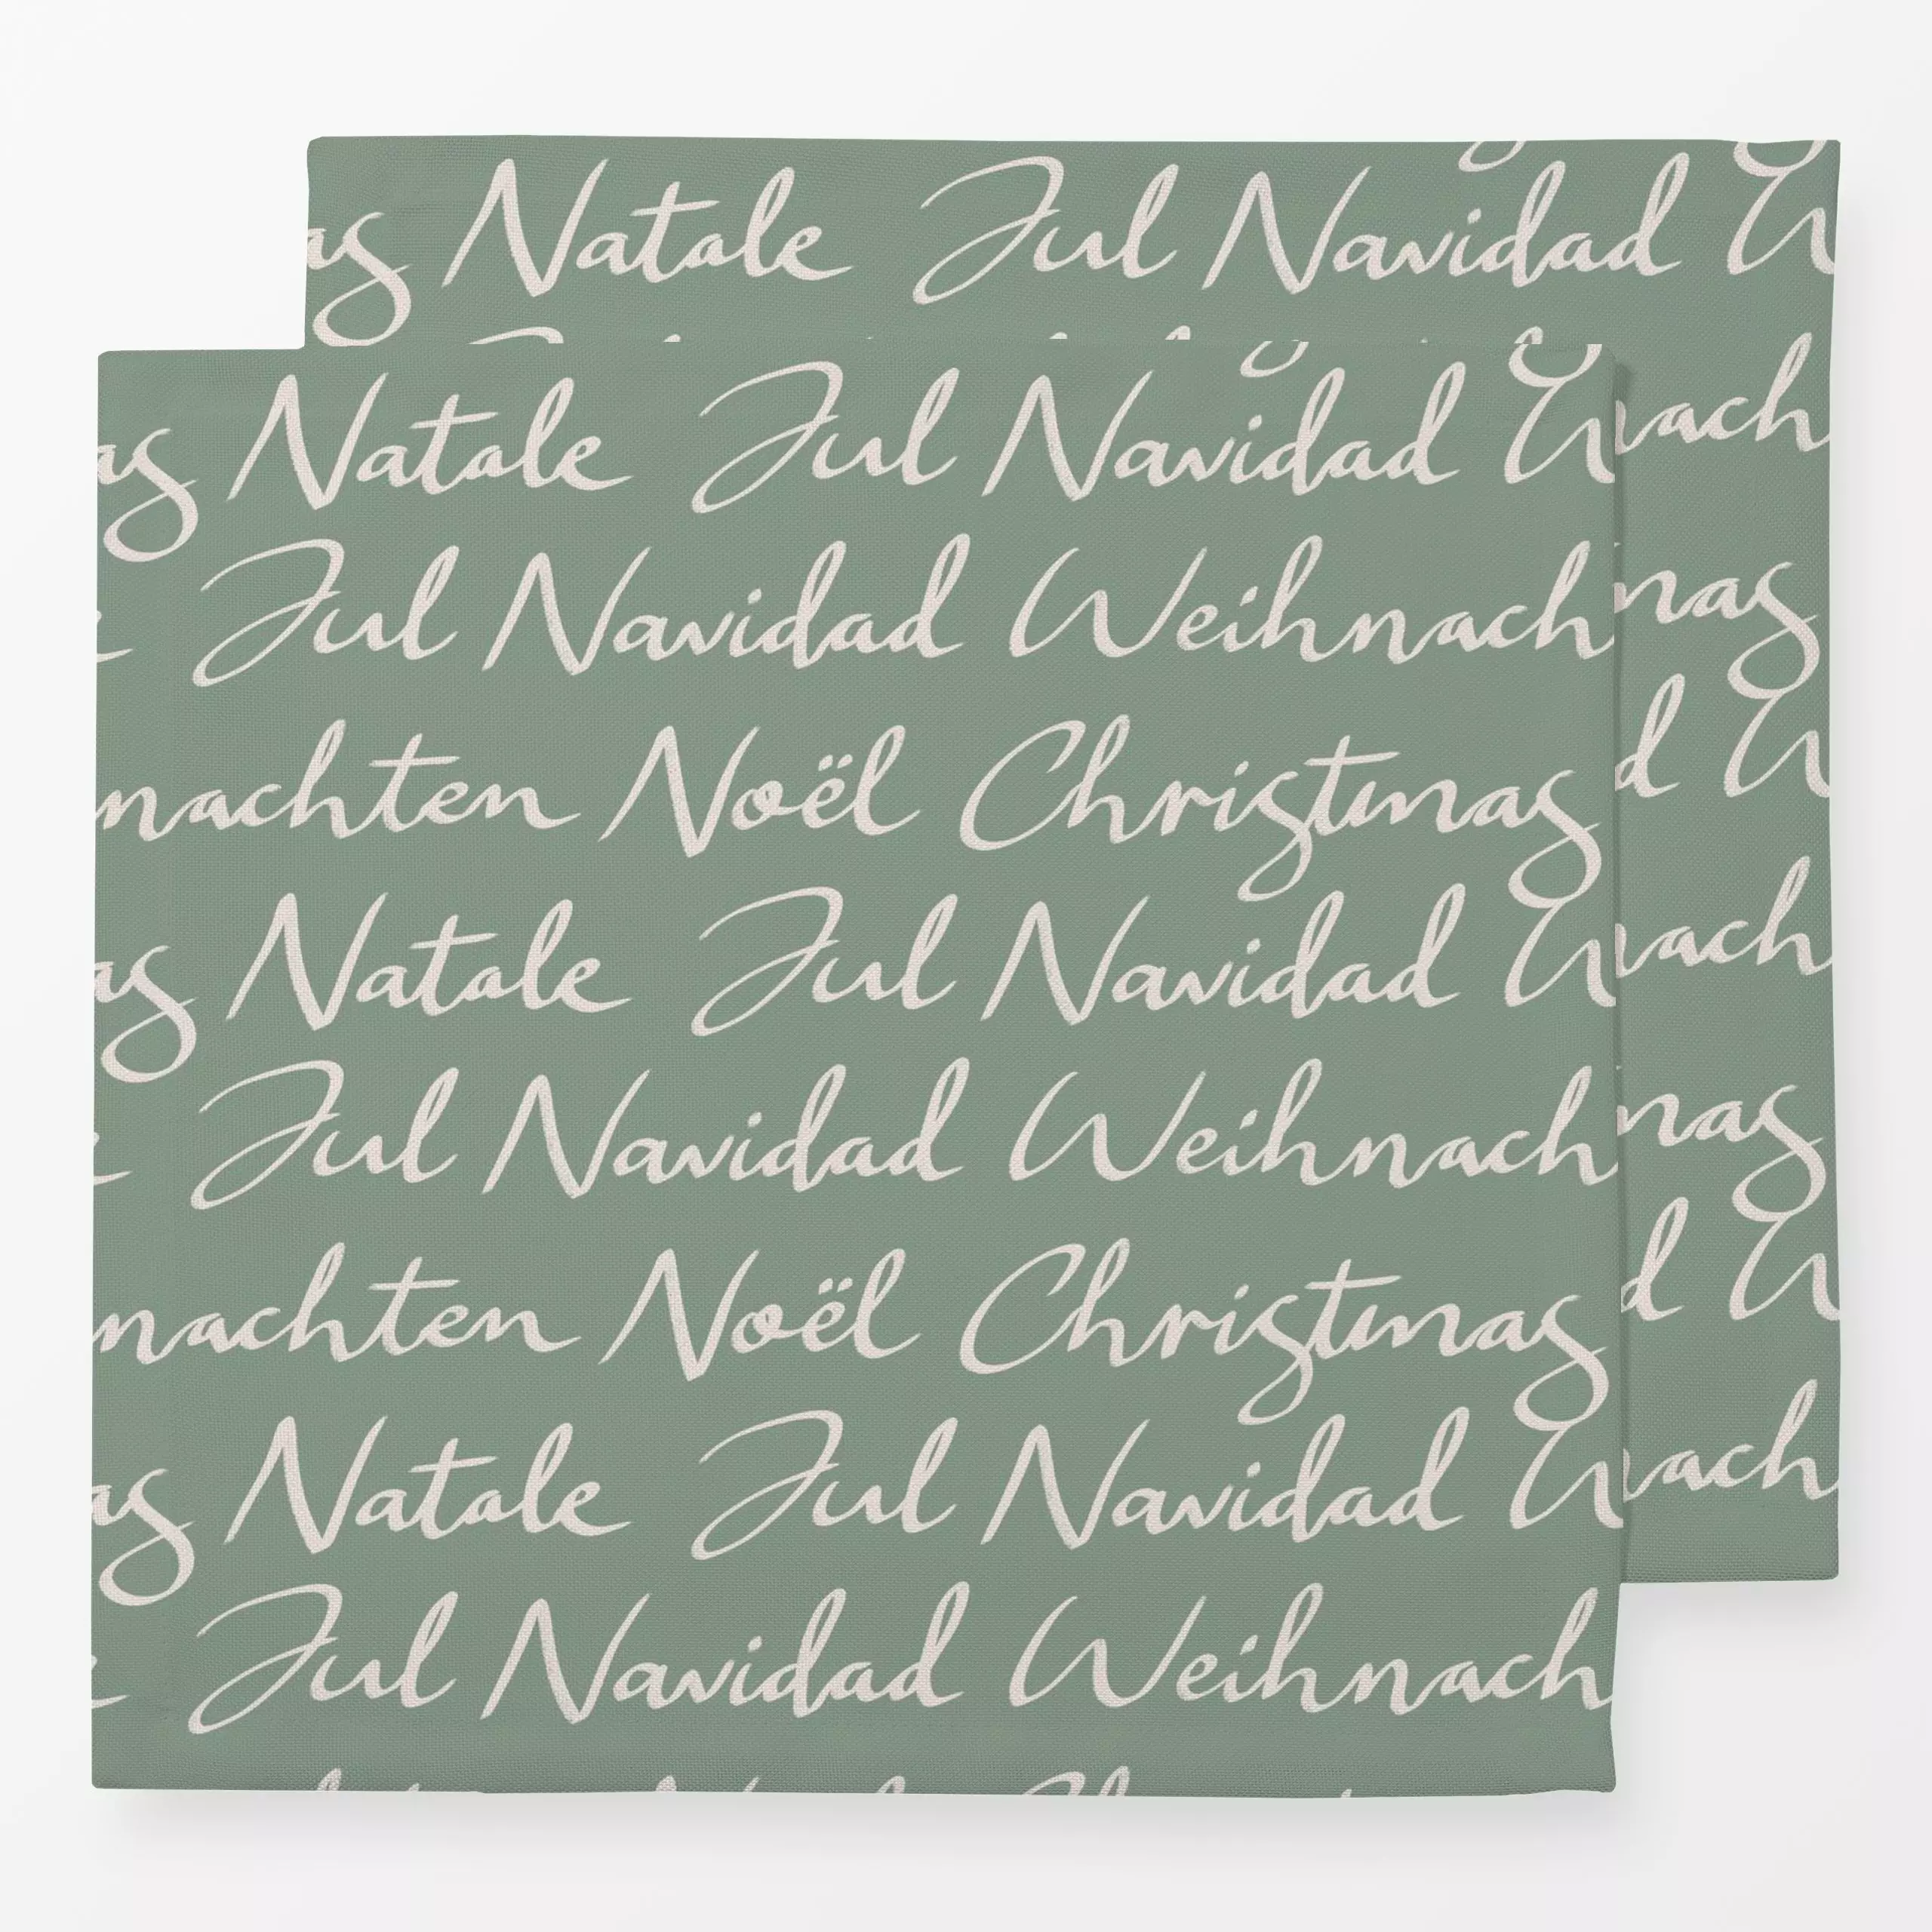 Natale Jul Navidad
Natale Jul Navidad
Jul Navidad Weihnach
nachten Noël Christmas
Natale Jul Navidad
Jul Navidad Weihnach
nachten Noël Christmas
Natale Jul Navidad
Jul Navidad Weihnach